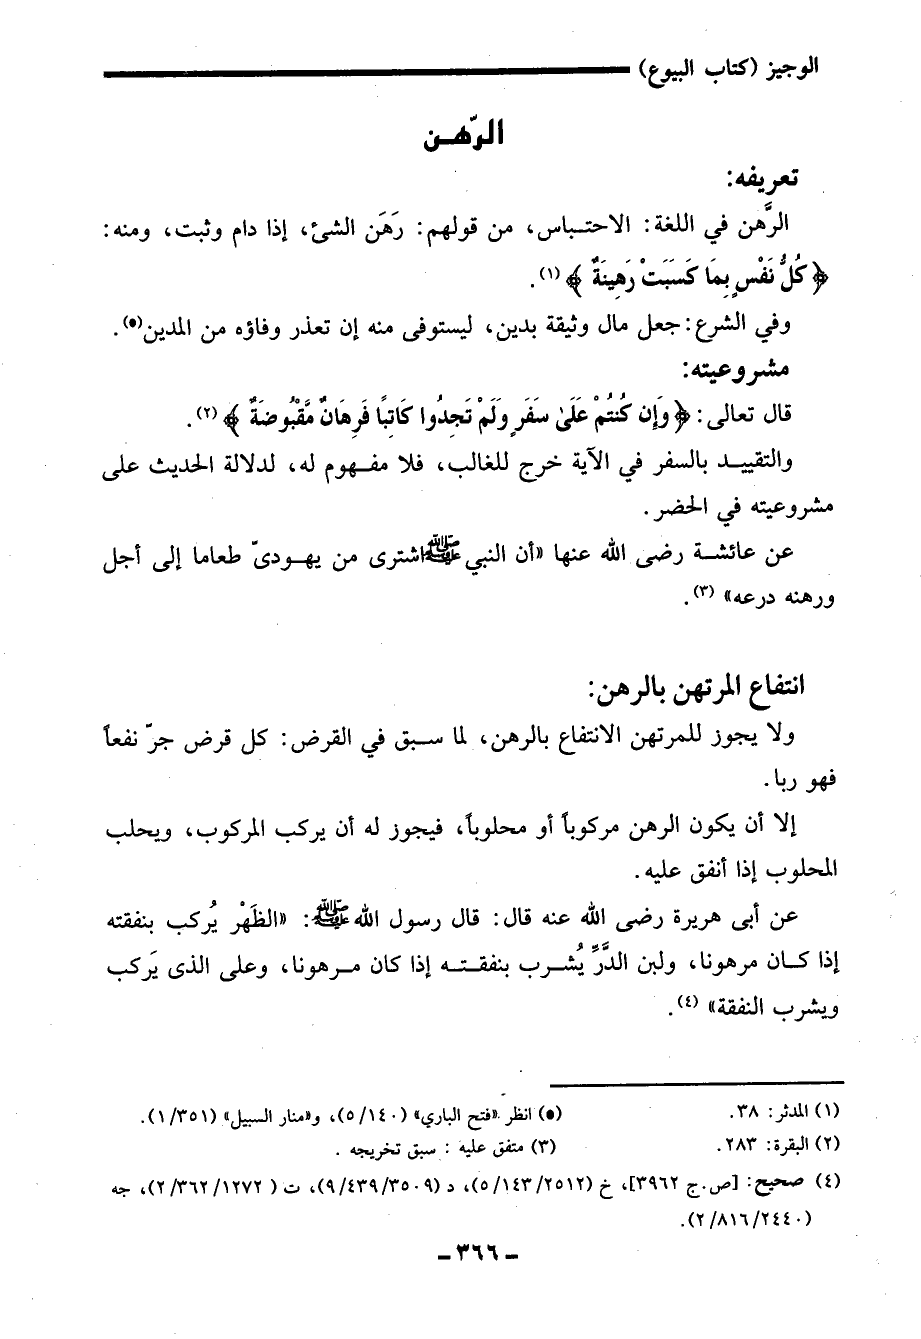 الوجيز (كتاب البيوع)
الرّهــن
تعريفه:
الرَّهن في اللغة: الاحتـباس، من قولهم: رَهَن الشئ، إذا دام وثبت، ومنه:
﴿ كُلُّ نَفْسٍ بِمَا كَسَبَتْ رَهِينَةٌ ﴾ (١).
وفي الشرع: جعل مال وثيقة بدين، ليستوفى منه إن تعذر وفاؤه من المدين(•).
مشروعيته:
قال تعالى: ﴿ وَإِن كُنتُمْ عَلَىٰ سَفَرٍ وَلَمْ تَجِدُوا كَاتِبًا فَرِهَانٌ مَّقْبُوضَةٌ ﴾ (٢).
والتقييــد بالسفر في الآية خرج للغالب، فلا مفـهوم له، لدلالة الحديث على
مشروعيته في الحضر.
عن عائشـة رضى الله عنها «أن النبي ﷺ اشترى من يهـودىّ طعاما إلى أجل
ورهنه درعه» (٣).
انتفاع المرتهن بالرهن:
ولا يجوز للمرتهن الانتفاع بالرهن، لما سـبق في القرض: كل قرض جرّ نفعاً
فهو ربا.
إلا أن يكون الرهن مركوباً أو محلوباً، فيجوز له أن يركب المركوب، ويحلب
المحلوب إذا أنفق عليه.
عن أبى هريرة رضى الله عنه قال: قال رسول الله ﷺ: «الظَهْر يُركب بنفقته
إذا كــان مرهونا، ولبن الدَّرِّ يُشــرب بنفقـتــه إذا كان مـرهونا، وعلى الذى يَركب
ويشرب النفقة» (٤).
(١) المدثر: ٣٨. (•) انظر «فتح الباري» (٥/١٤٠)، و«منار السبيل» (١/٣٥١).
(٢) البقرة: ٢٨٣. (٣) متفق عليه : سبق تخريجه .
(٤) صحيح: [ص.ج ٣٩٦٢]، خ (٥/١٤٣/٢٥١٢)، د (٩/٤٣٩/٣٥٠٩)، ت ( ٢/٣٦٢/١٢٧٢)، جه
(٢/٨١٦/٢٤٤٠).
ـ ٣٦٦ ـ